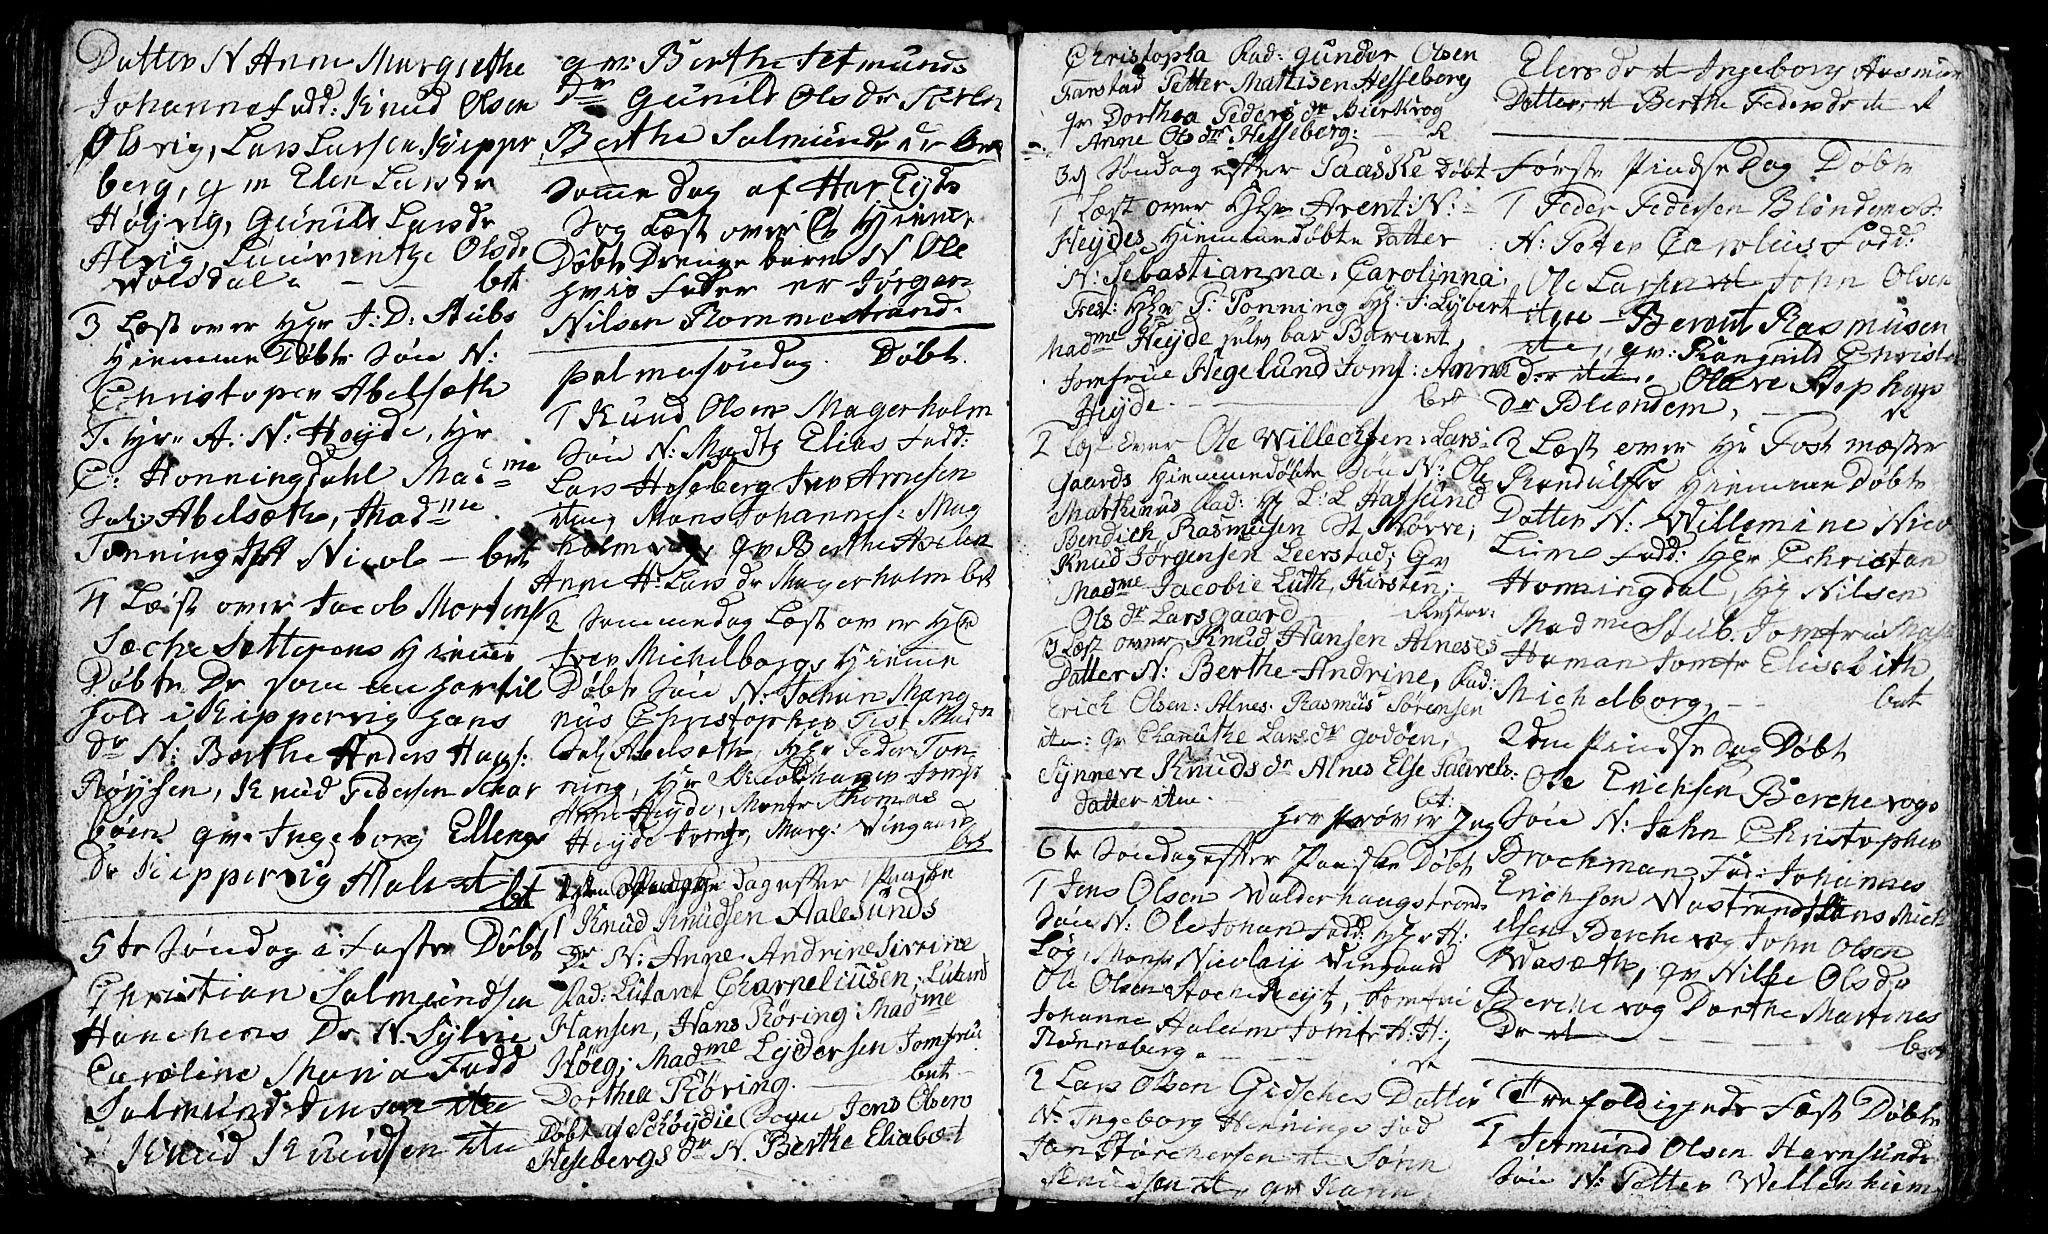 Datter N Anne Margrethe
Johanne fadd: Knud Olsen
Olsvig, Lars Larsen Kipper
berg, qvin Elen Larsdr
Høyvig, Gunild Larsdr
Alvig, Laurentze Olsdr
Wolsdal. - - bet
3 Læst over Hgr J: D: Stubs
Hiemme Døbte Søn N:
Christopen Abelseth
T. Hgr A: N: Heyde, Hr
C: Honningdahl Madme
Sal: Abelsæth, Madme
Tonning Jft Nicol - bet
4 Læst over Jacob Mortens
Hiemme
Døbte Dr som en har til
hold i Kippervig hans
dr N: Berthe Anders Haas:
Røysen, Knud Pedersen Skar
bøen qv. Ingeborg Ellengs
Dr Kippervig Malent
bet
5te Søndag i Faste Døbt
Christian Salmundsen
Hanchens Dr. N. Sylvie
Caroline Maria Fadd
Salmund Jensen ite
Knud Knudsen ite
qv: Berthe Jetmunds
Dr Gunild Ols Dr
Berthe Salmunds dr
Samme Dag af Har Eyds
Sog Læst over Et Hiemme
Døbt Drenge barn N Ole
hvis Fader er Jørgen
Nilsen Flommestrand.
Palmesøndag. Døbt.
1 Knud Olsen Magerholm
Søn N: Madtz Elias Fadd:
Lars Heseberg Iver Arnesen
iten Mons Johannes: Mag
holm qv Berthe
Anne H: Lars dr Magerholm bet
2 Sammedag Læst over Hgr
Iver Michelborgs Hiemme
Døbte Søn N: Johan Mang
nus Christopher Test Mad
Sal: Abelsæth, Hgr Peder Ton-
ning, Hr Jomfr
Anne Heyde, Monfr Thomas
Heyde Jomfr, Marg: Wingaard
bet
dag efter Paaske
1 Knud Knudsen Aalesunds
Dr N: Anne Andrine Sirrine
Fad: Lutant Charneliusen; Lutent
Hansen, Hans Røring Madme
Høeg; Madme Lydersen Jomfru
Dorthea Røring. - bet
Døbt af Schøydie Sogn Jens Olsens
Hesebergs dr N. Berthe Eliabet
Christopha Fad: Gunder Olsen
Ranstad Petter Mattisen Hesseberg
qv Dorthea Peders dr Bierkvog
Anne Ols dr Hesseberg: - R
3die Søndag efter Paaske Døbt
1 Læst over Hgr Arent: N:
Heydes Hiemmedøbte Datter
N: Sebastianna, Carolinna;
Test: Hgr P: Tonning Hr: J: Lybert
Madme Heyde selv bar Barnet,
Jomfrue Hegelund Jomf: Anne
Heyde. - bet
2 Læst over Ole Willechsen: Lars-
gaards Hiemmedøbte Søn N: Ole
Marthinus Fad: Hr L: L Hafsund
Bendich Rasmusen St Nørve;
Knud Jørgensen Leerstad; Qv
Madme Jacobie Luth, Kirsten;
Ols dr Larsgaard Rester:
3 Læst over Knud Hansen Alneses
Datter N: Berthe Andrine, Fad:
Erich Olsen: Alnes. Rasmus Sørensen
iten: qv Chanuthe Lars dr Godøen,
Synneve Knuds dr Alnes Else
datter iten. bet:
her prøver Jeg
6te Søndag efter Paaske Døbt
1 Jens Olsen Walderhaugstrands
Søn N: Ole Johan Fadd: Hgr H:
Løg, Monsr Nicolaii Wingaard
Ole Olsen Jomfru
Johanne Aalum Jomfr H: H:
Rønneberg. - rt
2 Lars Olsen Gidsches Datter
N: Ingeborg Henninge Fad
Jan Størchersen ite Sørin
Knudsen it qv Karin
Elers dr it Ingeborg Aasmun
Datter it Berthe Peders dr it rt
Første Pindse Dag Døbt
1 Peder Pedersen Blindems:
N: Petter Carolus Fadd:
Ole Larsen it John Olsen
iten - Berent Rasmusen
iten, qv: Rangnild Christe
dr iten. Olave Stephans
Dr Blendem, - rt
2 Læst over Hr Post mæster
Randulfs Hiemme Døbte
Datter N: Willemine Nico
Line Fadd: Hgr Christan
Honningdal, Hr Nilsen
Madme Stub. Jomfru
Haman Jomfr Elisebith
Michelborg, - - bet
2den Pindse Dag Døbt
Ole Erichsen Berchevogs
Søn N: Jahn Christopher
Brochman Fad: Johannes
Erichsen Wastrand Hans Mich
elsen Berchevog John Olsen
Wasæth, qv Nille Olsdr
Berchevog Dorthe Martines
Dr it - - bet
Trefoldigheds Fest Døbt
1 Jetmund Olsen Harhsunds
Søn N: Petter Wellenhiem